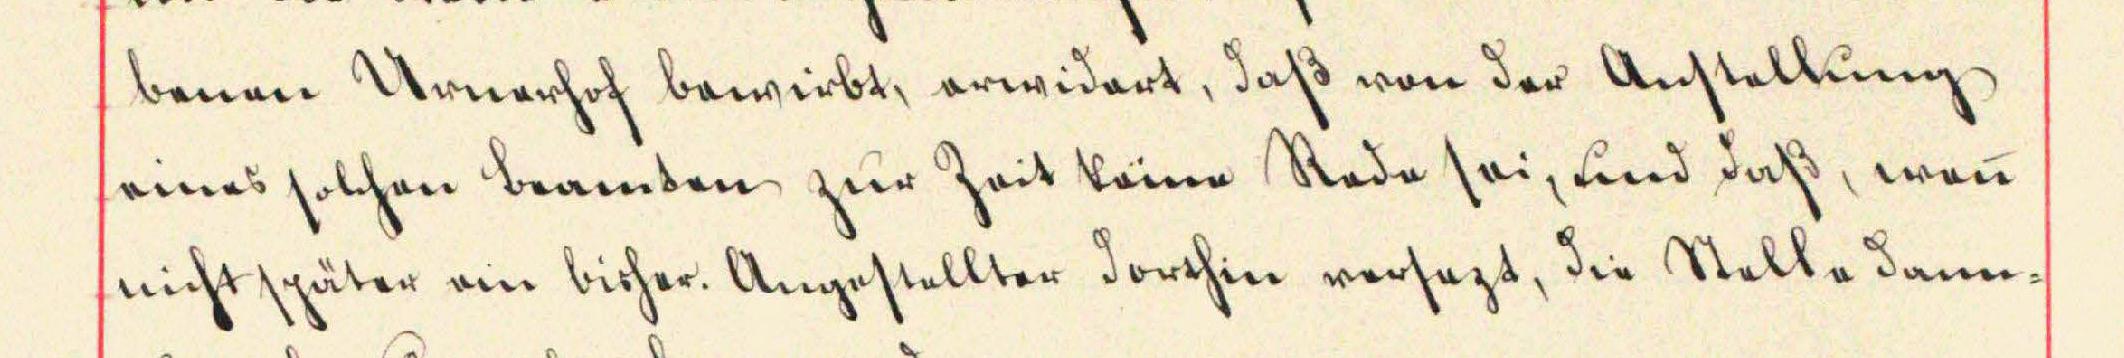 benen Urnerhof bewirbt, erwidert, daß von der Anstellung
eines solchen Beamten zur Zeit keine Rede sei, und daß, wen̄
nicht später ein bisher. Angestellter dorthin versezt, die Stelle dann-